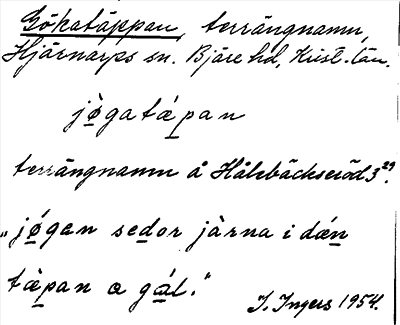 Gökatäppan, terrängnamn,
Hjärnarps sn. Bjäre hd, Krist. län.
jǫ̀gatæ̱pan
terrängnamn å Hålebäckseröd 3²⁹.
„jǫ́gan se̱dor jàrna i dæ̱n
tæ̱pan a gá̱l."
I. Ingers 1954.